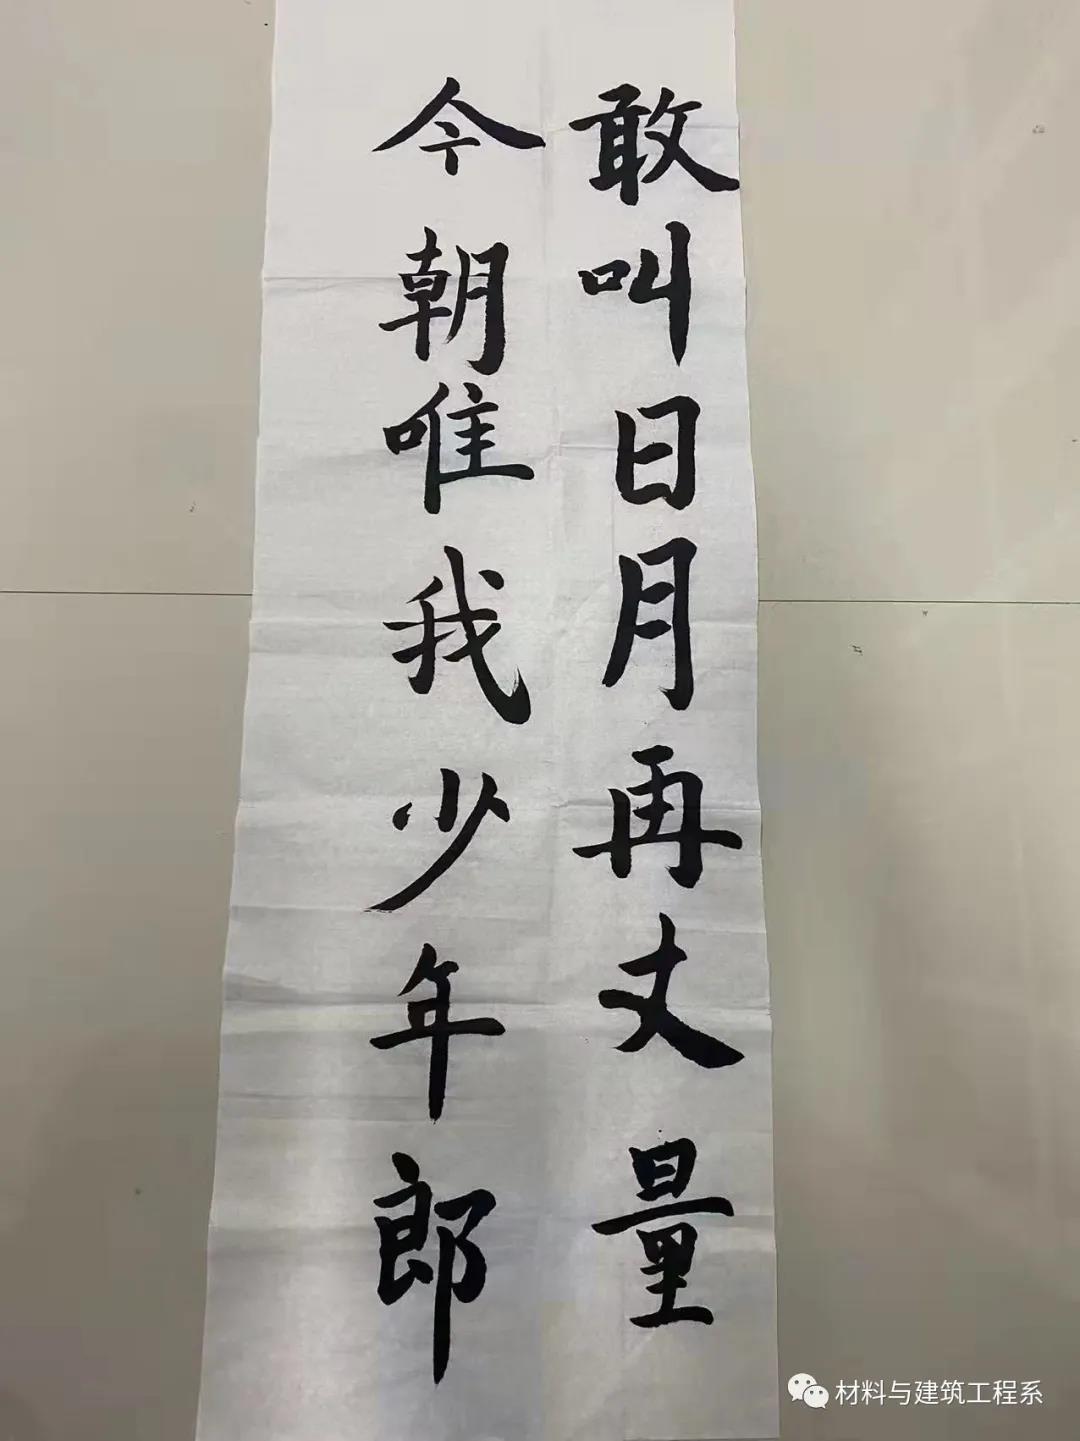 敢叫日月再丈量
今朝唯我少年郎
材料与建筑工程系